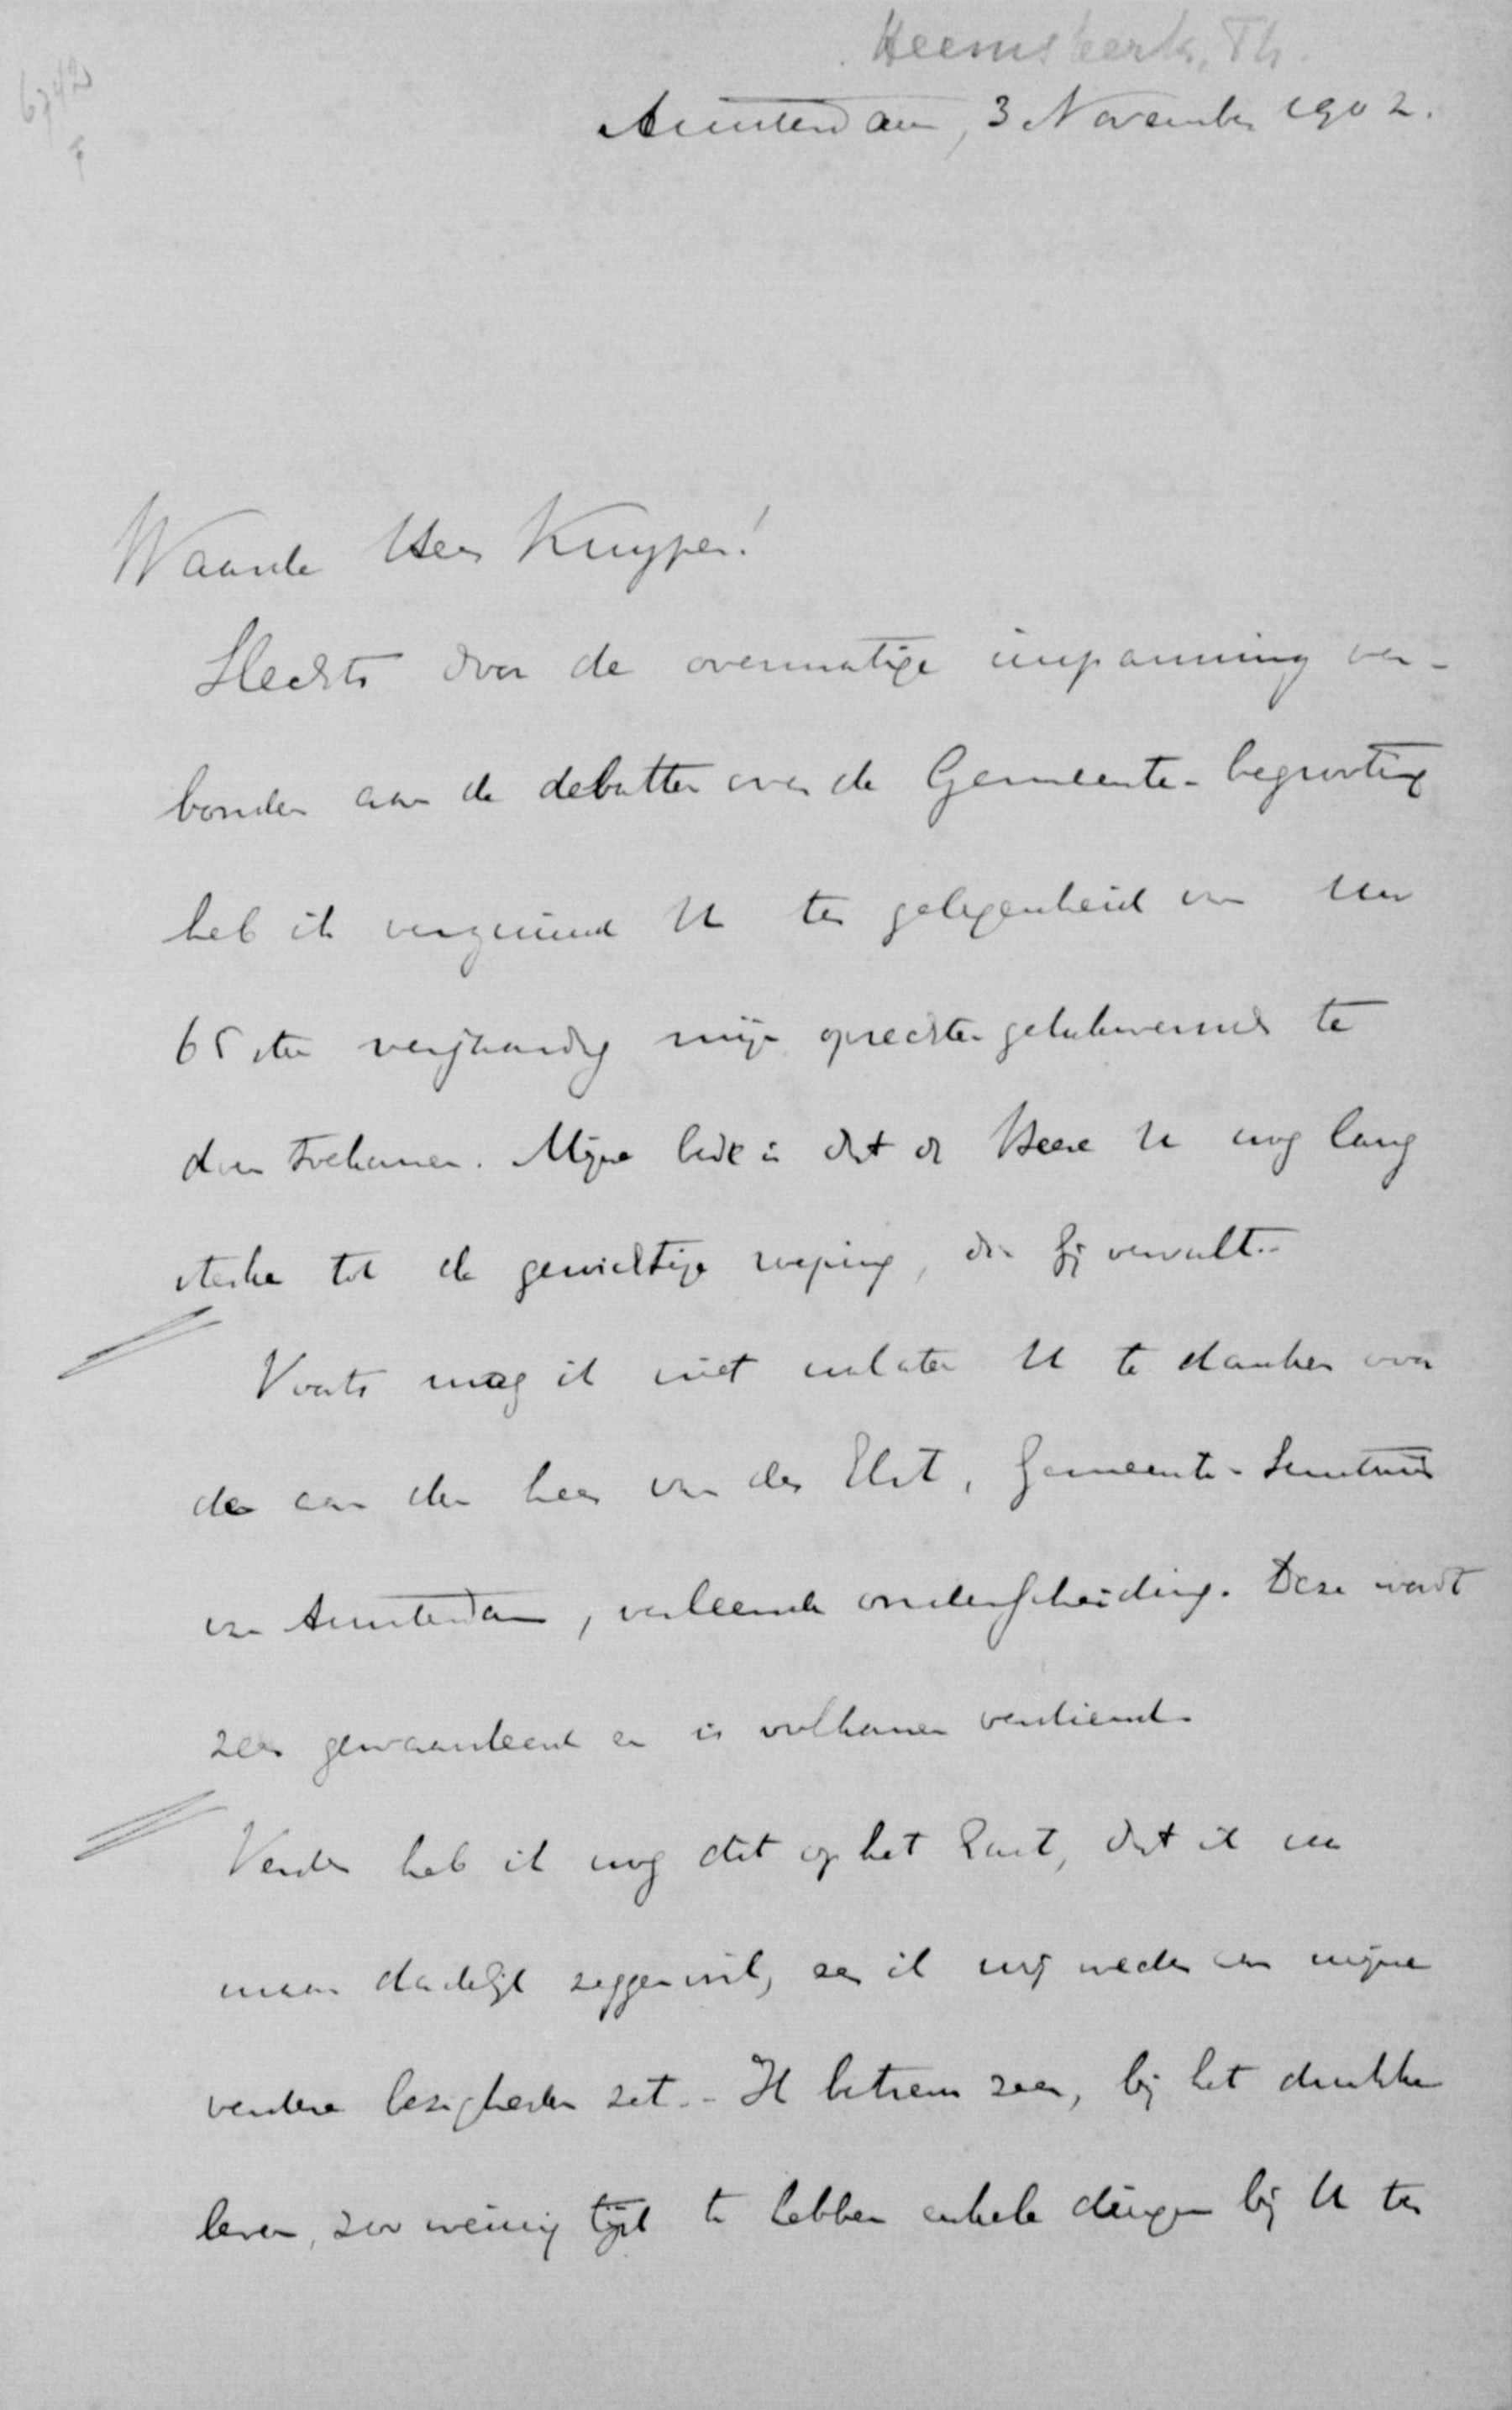 6742
Heemskerk, Th.
Amsterdam, 3 November 1902.
Waarde Heer Kuyper!
Slechts door de overmatige inspanning ver-
bonden aan de debatten over de Gemeente-begrooting
heb ik verzuimd U ter gelegenheid van Uw
65ste verjaardag mijn oprechten gelukwensch te
doen toekomen. Mijne bede is dat de Heere U nog lang
sterke tot de gewichtige roeping, die Gij vervult.-
Voorts mag ik niet nalaten U te danken voor
de aan den heer van der Elst, Gemeente-Secretaris
van Amsterdam, verleende onderscheiding. Deze wordt
zeer gewaardeerd en is volkomen verdiend.
Verder heb ik nog dit op het hart, dat ik nu
maar dadelijk zeggen wil, eer ik mij weder aan mijne
verdere bezigheden zet.- Ik betreur zeer, bij het drukke
leven, zoo weinig tijd te hebben enkele dingen bij U ter